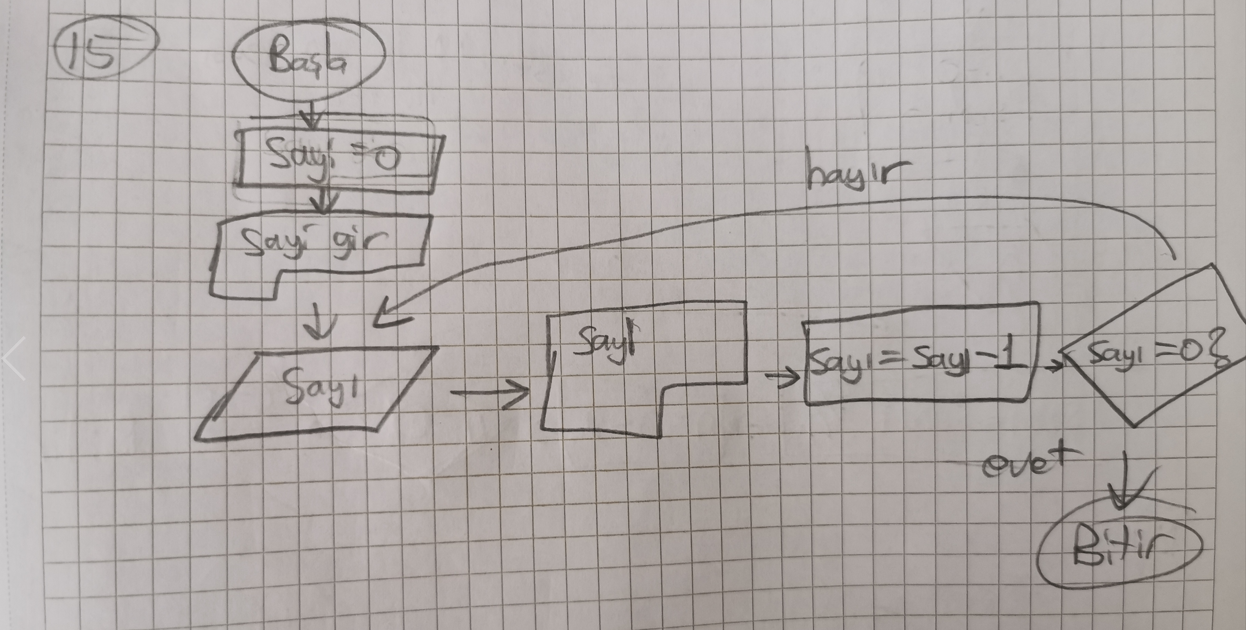 15
Başla
Sayi = 0
Sayi gir
hayır
Sayı
Sayı
Sayı = Sayı - 1
Sayı = 0?
evet
Bitir